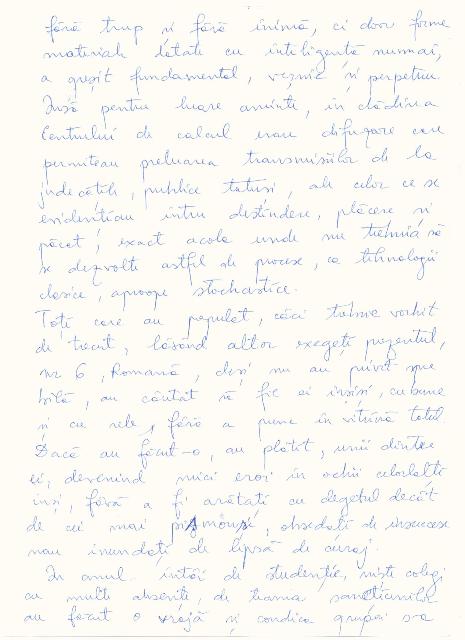 fără trup și fără inimă, ci doar forme
materiale dotate cu inteligență numai,
a greșit fundamental, veșnic și perpetuu.
Însă pentru luare aminte, în clădirea
Centrului de calcul erau difuzoare care
permiteau preluarea transmisiilor de la
judecățile, publice totuși, ale celor ce se
evidențiau întru destindere, plăcere și
păcat, exact acolo unde nu trebuia să
se dezvolte astfel de procese, ca tehnologii
clasice, aproape stochastice.
Toți care au populat, căci trebuie vorbit
de trecut, lăsând altor exegeți prezentul,
nr 6, Romană, deși nu au privit spre
bilă, au căutat să fie ei înșiși, cu bune
și cu rele, fără a pune în vitrină totul
Dacă au făcut-o, au plătit, unii dintre
ei, devenind mici eroi în ochii celorlalți
inși, fără a fi arătați cu degetul decât
de cei mai pizmăuși, obsedați de insuccese
sau inundați de lipsă de curaj.
În anul întâi de studenție, niște colegi
cu multe absențe, de teama sancțiunilor
au făcut o vrajă și condica grupei s-a